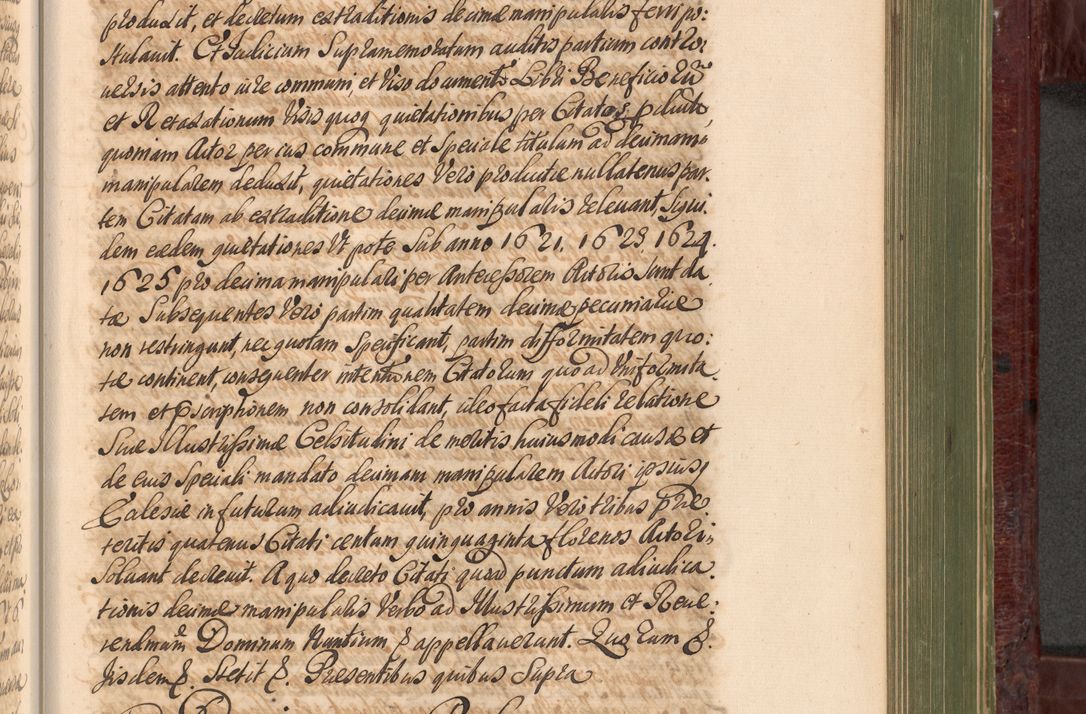 produxit, et decretum extraditionis decimæ manipularis ferri po:
stulavit. Et Judicium Supramemoratum auditis partium contro,
versis attento iure communi, et Viso documento Libri Beneficiorū
et Retaxationum Visisquoq quietationibus per Citatos p
quoniam Actor per ius commune et speciale titulum ad decimam
manipularem deduxit, quietationes Vero productæ nullatenus par,
tem Citatam ab extraditione decimæ manipularis relevant, siqui,
dem eædem quietationes Vt pote Sub anno 1621. 1623. 1624.
1625 pro decima manipulari per Antecessorem Actoris sunt da,
tæ Subsequentes Vero partim qualitatem decimæ pecuniariæ
non restringunt, nec quotam specificant, partim difformitatem quo:
tæ continent, consequenter intentionem Citatorum quo ad Vniformita,
tem et Præscriptionem non consolidant, ideo facta fideli relatione
Suæ Illustrissimæ Celsitudini de meritis huiusmodi causæ et
de eius speciali mandato decimam manipularem Actori ipsiusq
Ecclesiæ in futurum adiudicavit, pro annis Vero tribus præ
teritis quatenus Citati centum quinquaginta florenos Actori,
Solvant decrevit. A quo decreto Citati quoad punctum adiudica,
tionis decimæ manipularis Verbo ad Illustrissimum et Reve,
rendmum Dominum Nuntium &. appellaverunt. Quorum &.
Iisdem &. Stetit &. Præsentibus quibus Supra